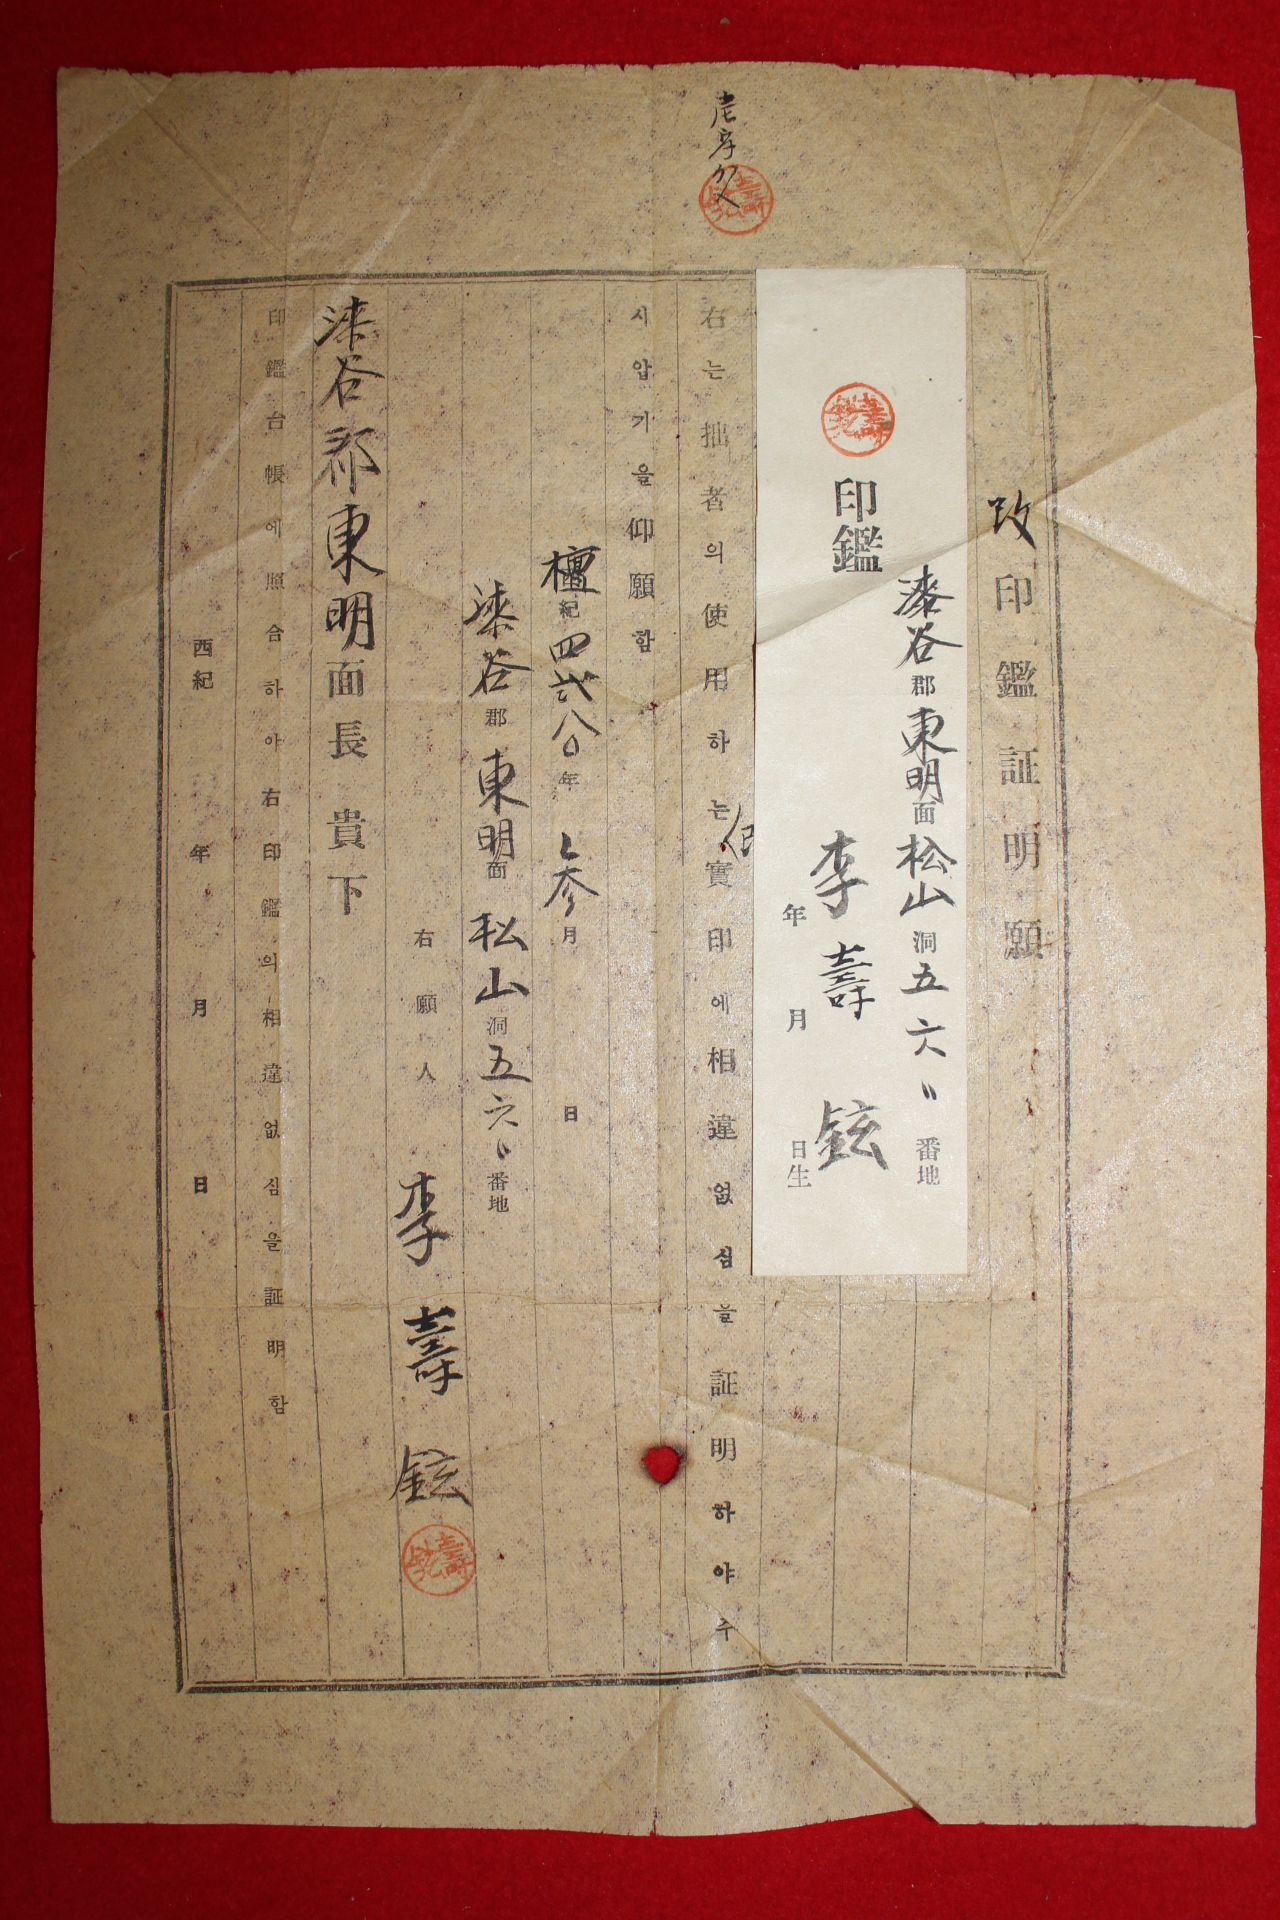 改印鑑証明願
漆谷郡東明面松山洞五六〃番地
印鑑 李壽鉉
年 月 日生
右는拙者의使用하는實印에相違없심을証明하야수
시압기을仰願함
檀紀四弍八〇年 參月 日
漆谷郡東明面松山洞五六〃番地
右願人 李壽鉉
漆谷郡東明面長 貴下
印鑑台帳에照合하아右印鑑의相違없심을証明함
西紀 年 月 日